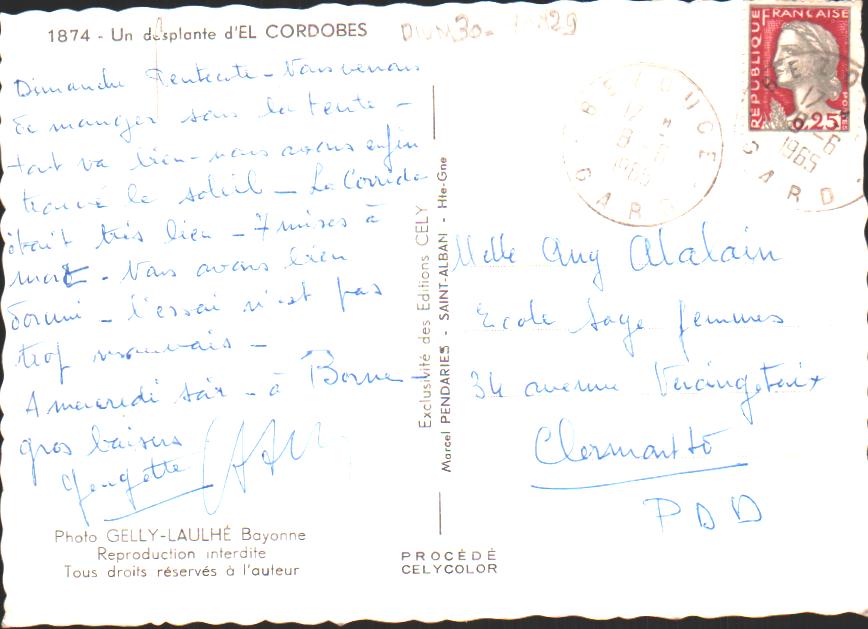 1874 - Un desplante d'EL CORDOBES
Dimanche Pentecote - Nous venons
de manger sous la tente -
tout va bien - nous avons enfin
trouvé le soleil - La Corrida
était très bien - 7 mises à
mort - Nous avons bien
dormi - l'essai n'est pas
trop mauvais -
A mercredi soir - à
gros baisers
Photo GELLY-LAULHÉ Bayonne
Reproduction interdite
Tous droits réservés à l'auteur
Exclusivité des Editions CELY
Marcel PENDARIES - SAINT-ALBAN - Hte-Gne
PROCÉDÉ
CELYCOLOR
GARD
8-6
1965
REPUBLIQUE FRANÇAISE
POSTES
0,25
17
8-6
1965
GARD
Melle Any
Ecole Sage femmes
34 avenue Vercingetorix
Clermont Fd
P D D